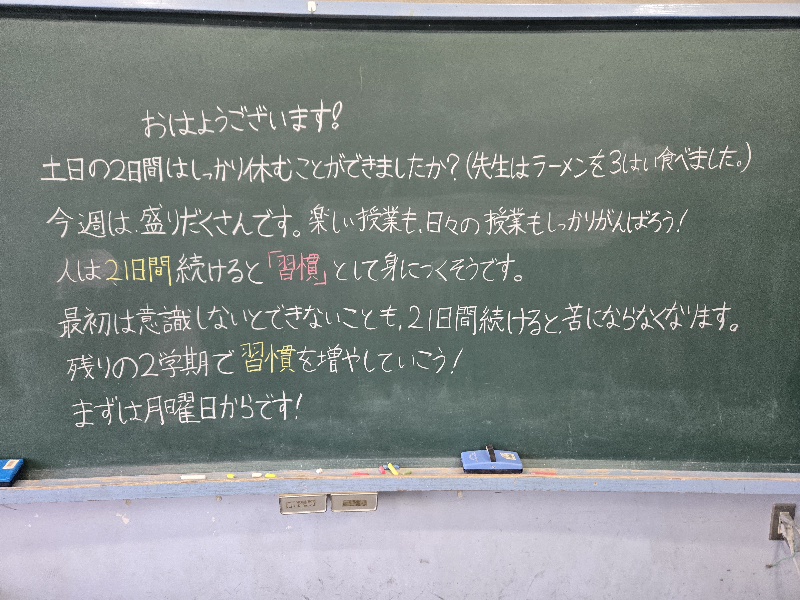 おはようございます!
土日の2日間はしっかり休むことができましたか?(先生はラーメンを3はい食べました。)
今週は、盛りだくさんです。楽しい授業も、日々の授業もしっかりがんばろう!
人は21日間続けると「習慣」として身につくそうです。
最初は意識しないとできないことも、21日間続けると、苦にならなくなります。
残りの2学期で習慣を増やしていこう!
まずは月曜日からです!